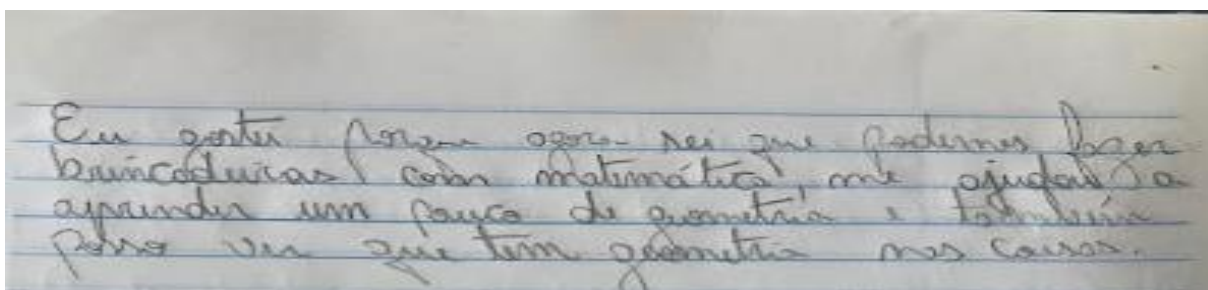 Eu gostei porque agora sei que podemos fazer
brincadeiras com matemática, me ajudou a
aprender um pouco de geometria e também
posso ver que tem geometria nas coisas.